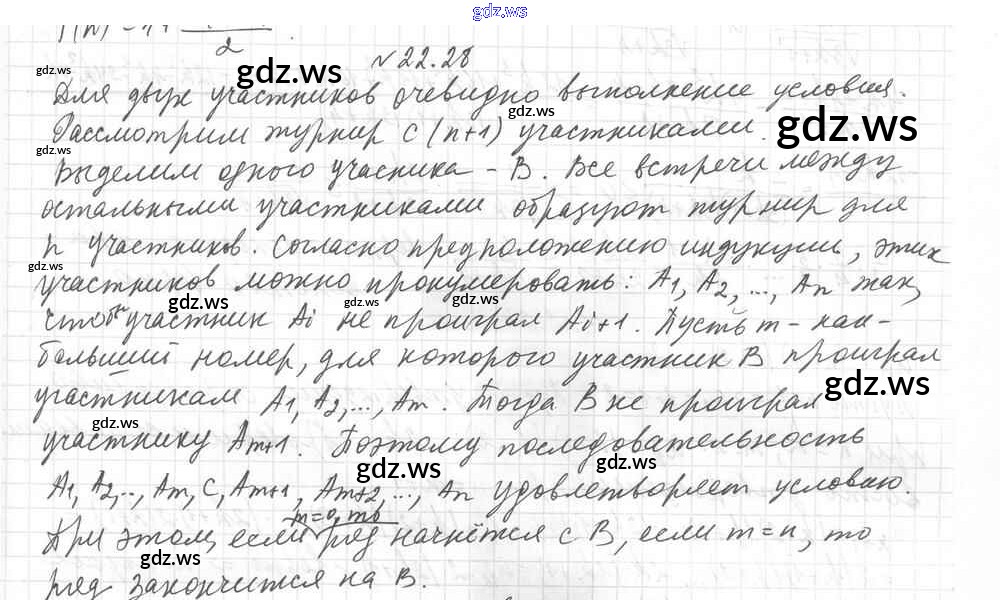 gdz.ws
f(n) = n +
2
№22.28
Для двух участников очевидно выполнение условия.
Рассмотрим турнир с (n+1) участниками.
Выделим одного учасника - В. Все встречи между
остальными участниками образуют турнир для
n участников. Согласно предположению индукции, этих
участников можно пронумеровать: A1, A2, ..., An так,
чтобы участник Ai не проиграл Ai+1. Пусть m - наи-
больший номер, для которого участник В проиграл
участникам A1, A2, ..., Am. Тогда В не проиграл
участнику Am+1. Поэтому последовательность
A1, A2, .., Am, C, Am+1, Am+2, ..., An удовлетворяет условию.
m=0, то
При этом, если ряд начнётся с В, если m=n, то
ряд закончится на В.
gdz.ws
gdz.ws
gdz.ws
gdz.ws
gdz.ws
gdz.ws
gdz.ws
gdz.ws
gdz.ws
gdz.ws
gdz.ws
gdz.ws
gdz.ws
gdz.ws